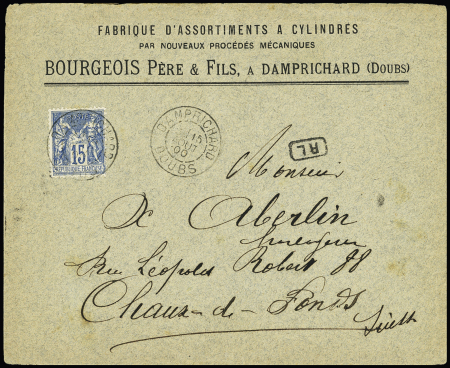 FABRIQUE D'ASSORTIMENTS A CYLINDRES
PAR NOUVEAUX PROCÉDÉS MÉCANIQUES
BOURGEOIS PÈRE & FILS, A DAMPRICHARD (DOUBS)
15
REPUBLIQUE FRANÇAISE
DAMPRICHARD
15
00
DOUBS
RL
Monsieur
Aberlin
Rue Léopold Robert 88
Chaux-de-Fonds